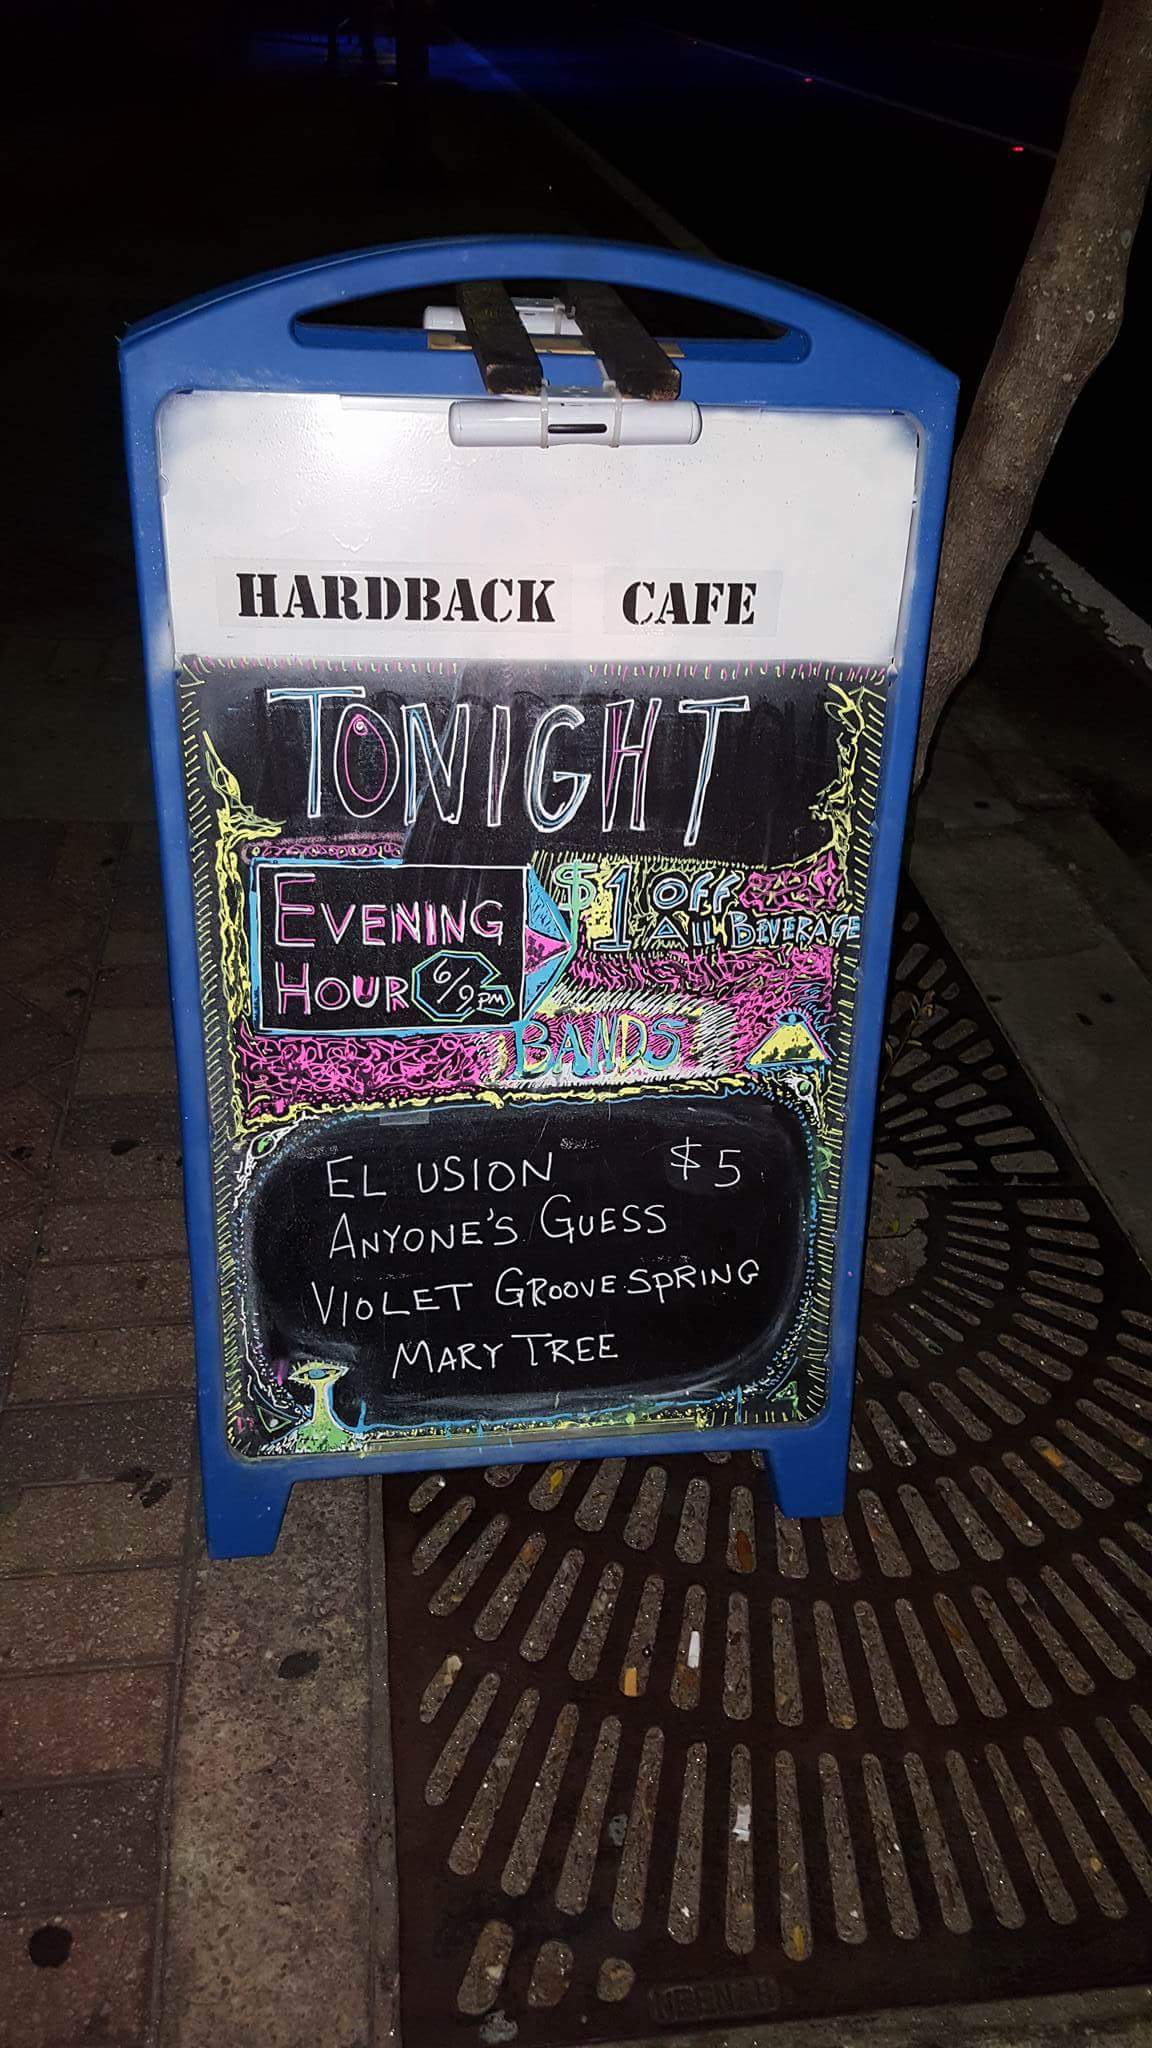 HARDBACK CAFE
TONIGHT
EVENING
HOUR 6/9 PM
$1 OFF
ALL BEVERAGE
BANDS
EL USION $5
ANYONE'S GUESS
VIOLET GROOVESPRING
MARY TREE